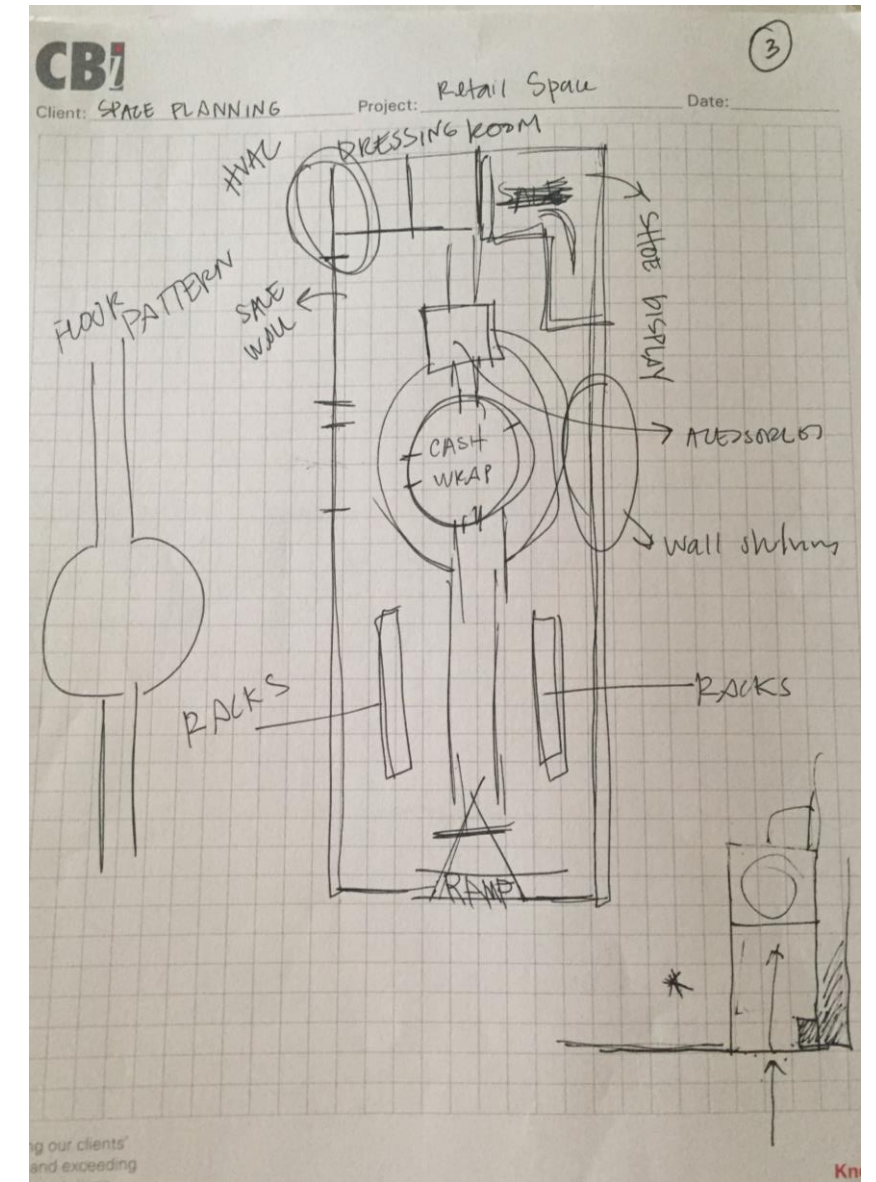 3
CBi
Client: SPACE PLANNING
Project: Retail Space
Date:
HVAC
DRESSING ROOM
SALE
SHOE DISPLAY
FLOOR
PATTERN
SALE
WALL
CASH
WRAP
Wall
RACKS
RACKS
RAMP
*
ng our clients'
and exceeding
Kn